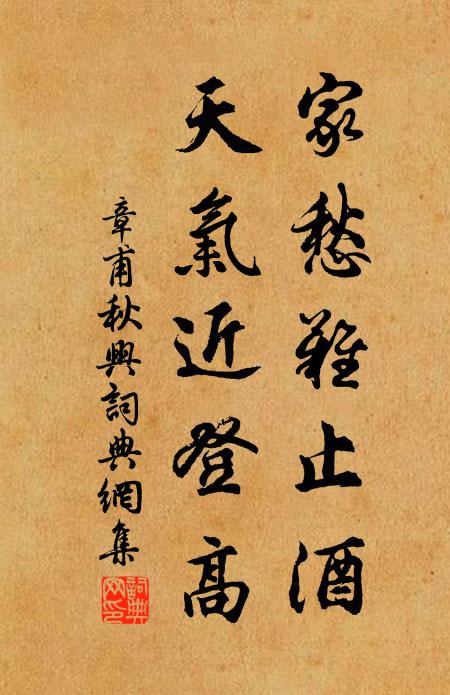 家愁難止酒
天氣近登高
章甫秋興詞典網集
詞典網印